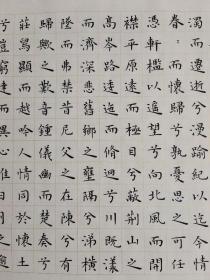 濁而遷逝兮漫踰紀以迄今情
眷眷而懷歸兮孰憂思之可任
憑軒檻以遙望兮向北風而開
襟平原遠而極目兮蔽荊山之
高岑路逶迤而脩迥兮川既漾
而濟深悲舊鄉之壅隔兮涕橫
墜而弗禁昔尼父之在陳兮有
歸歟之歎音鍾儀幽而楚奏兮
莊舄顯而越吟人情同於懷土
兮豈窮達而異心惟日月之逾